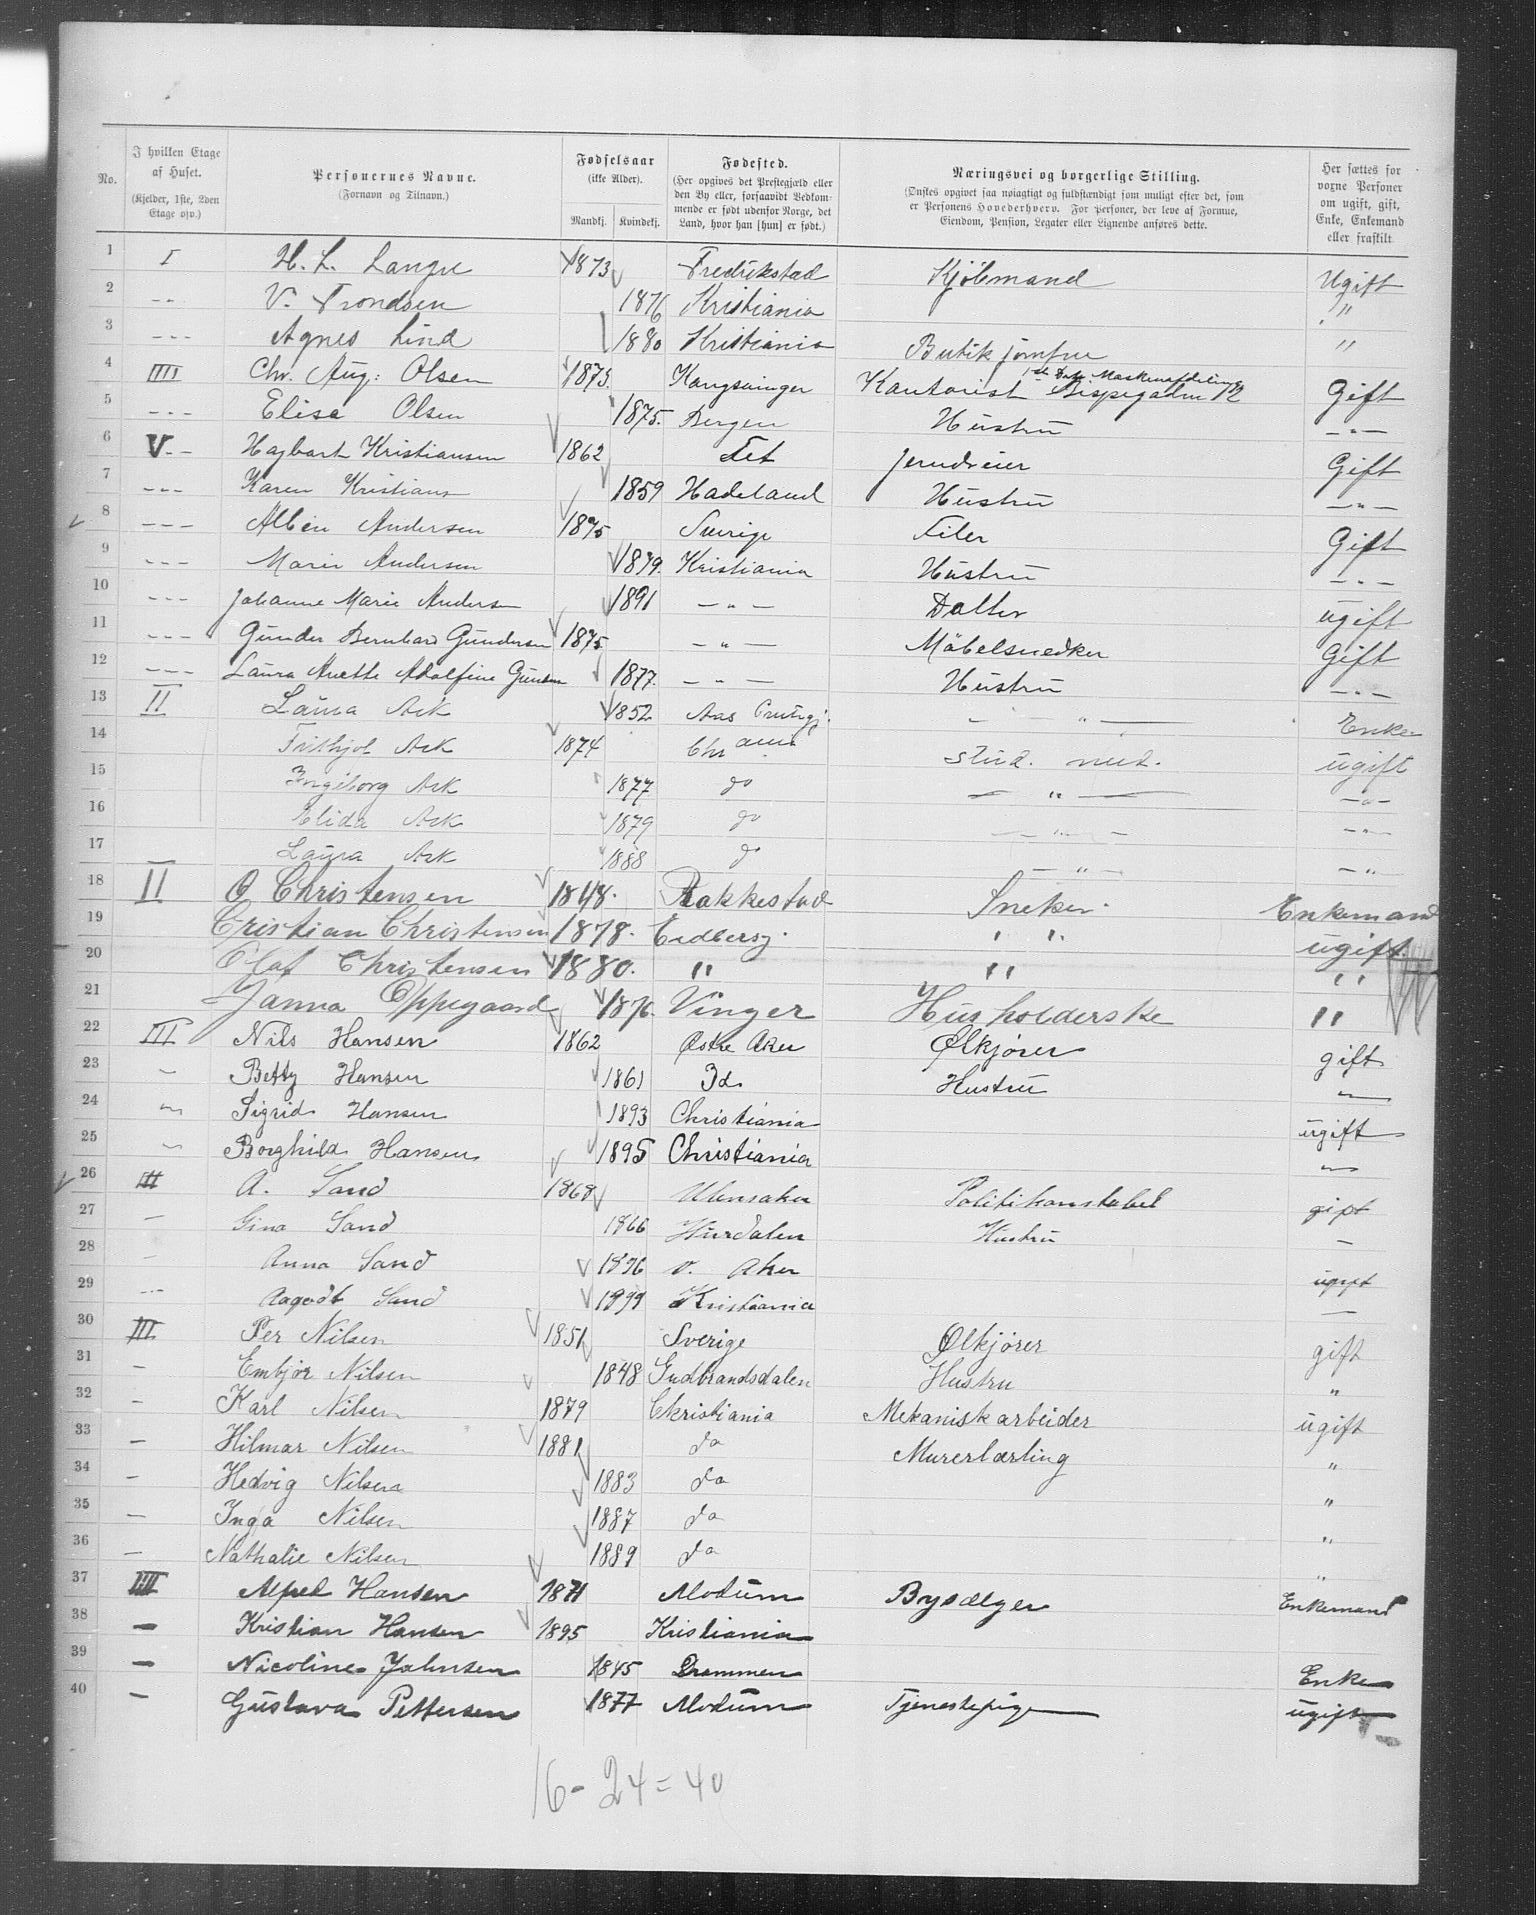 No.
I hvilken Etage af Huset. (Kjelder, 1ste, 2den Etage osv.)
Personernes Navne. (Fornavn og Tilnavn.)
Fødselsaar (ikke Alder). Mandkj. Kvindekj.
Fødested. (Her opgives det Prestegjæld eller den By eller, forsaavidt Vedkommende er født udenfor Norge, det Land, hvor han [hun] er født.)
Næringsvei og borgerlige Stilling. (Ønskes opgivet saa nøiagtigt og fuldstændigt som muligt efter det, som er Personens Hovederhverv. For Personer, der leve af Formue, Eiendom, Pension, Legater eller Lignende anføres dette.
Her sættes for voxne Personer om ugift, gift, Enke, Enkemand eller fraskilt
1 I H. L. Langu 1873 Fredrikstad Kjøbmand Ugift
2 -- V. Trondsen 1876 Kristiania "
3 --- Agnes Lind 1880 Kristiania Butikjomfru "
4 IIII Chr. Aug: Olsen 1873 Kongsvinger Kontorist Bispegaden 12 Gift
5 --- Elisa Olsen 1875. Bergen Hustru -"-
6 V-- Hagbart Kristiansen 1862 Fet Jerndreier Gift
7 --- Karen Kristians 1859 Hadeland Hustru -"-
8 --- Albin Andersen 1875 Sverige Filer Gift
9 --- Marie Andersen 1879. Kristiania Hustru -"-
10 --- Johanne Marie Andersen 1891 -"- Datter ugift
11 --- Gunder Bernhard Gundersen 1875 -"- Møbelsnedker Gift
12 --- Laura Anette Adolfine Gunder 1877. -"- Hustru -"-
13 II Laura Ask 1852 Aas Prestegj. -"- Enke
14 Frithjof Ask 1874 Chrania stud. med. ugift
15 Ingeborg Ask 1877 do -"- -"-
16 Elida Ask 1879 do -"- -"-
17 Laura Ask 1888 do -"- -"-
18 II O Christensen 1848. Rakkestad Sneker. Enkemand
19 Cristian Christensen 1878. Eidberg. " ugift
20 Olaf Christensen 1880. " " "
21 Janna Oppegaard 1876. Vinger Husholderske "
22 III Nils Hansen 1862 Østre Aker Ølkjører gift
23 - Betty Hansen 1861 Id. Hustru -
24 - Sigrid Hansen 1893 Christiania ugift
25 - Borghild Hansen 1895 Christiania -
26 III A. Sand 1868 Ulensaker Politikonstabel gipt
27 - Gina Sand 1866 Hurdalen Hustru -
28 - Anna Sand 1896 v. Aker ugipt
29 -- Aagodt Sand 1899 Kristiania -
30 III Per Nilsen 1851 Sverige Ølkjører gift
31 - Embjør Nilsen 1848 Gudbrandsdalen Hustru "
32 - Karl Nilsen 1879 Christiania Mekanisk arbeider ugift
33 - Hilmar Nilsen 1881 do Murerlærling "
34 - Hedvig Nilsen 1883 do "
35 - Inga Nilsen 1887 do "
36 - Nathalie Nilsen 1889 do "
37 IIII Alfred Hansen 1871 Modum Brysælger Enkemand
38 - Kristian Hansen 1895 Kristiania
39 - Nicoline Johnsen 1845 Drammen Enke
40 - Gustava Pettersen 1877 Modum Tjenestepige ugift
16 - 24 = 40